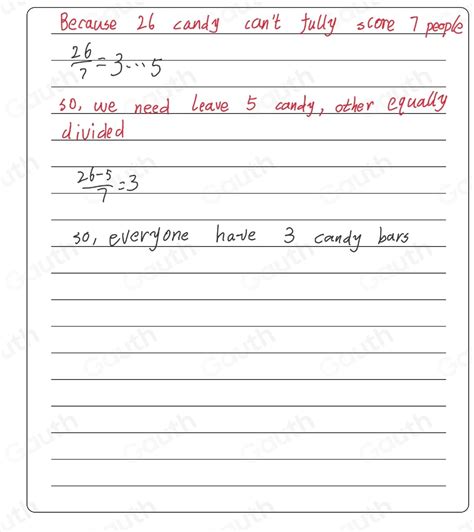 Because 26 candy can't fully score 7 people
26/7 = 3...5
so, we need leave 5 candy, other equally
divided
26-5/7 = 3
so, everyone have 3 candy bars